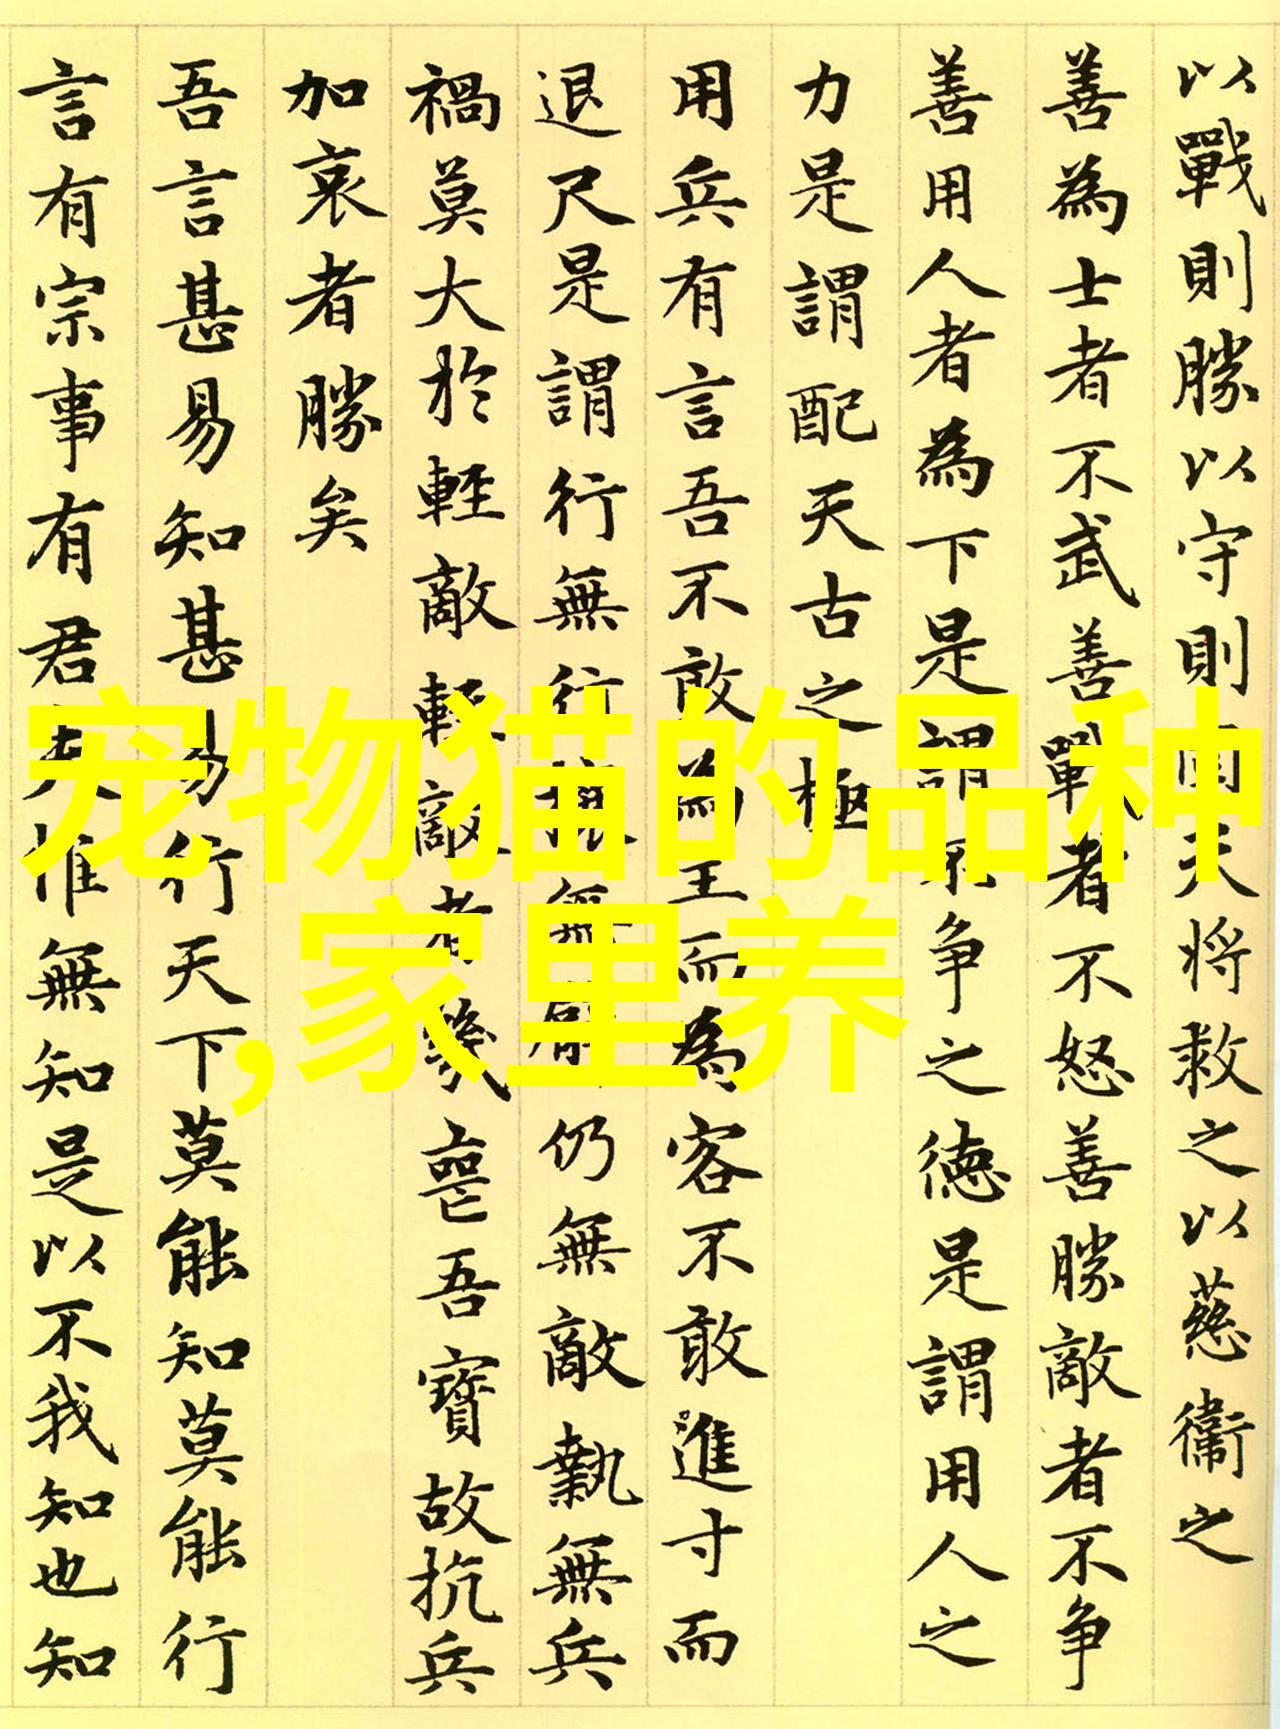 以戰則勝以守則固天將救之以慈衞之
善為士者不武善戰者不怒善勝敵者不争
善用人者為下是謂不争之德是謂用人之
力是謂配天古之極
用兵有言吾不敢為主而為客不敢進寸而
退尺是謂行無行攘無臂仍無敵執無兵
禍莫大於輕敵輕敵者幾喪吾寶故抗兵
加哀者勝矣
吾言甚易知甚易行天下莫能知莫能行
言有宗事有君夫惟無知是以不我知也知
宠物猫的品种
,家里养